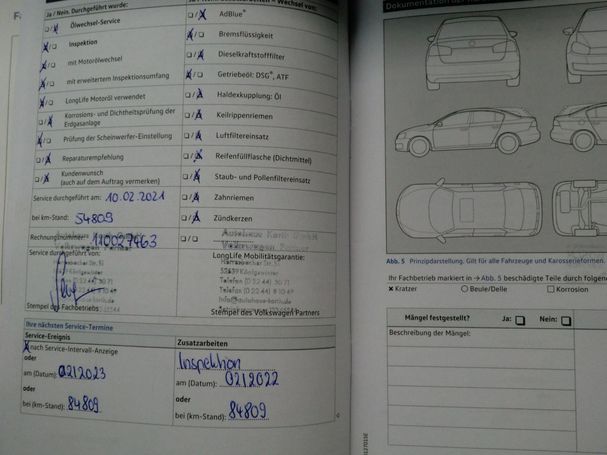 Ja / Nein. Durchgeführt wurde:
Ölwechsel-Service
Inspektion
mit Motorölwechsel
mit erweitertem Inspektionsumfang
LongLife Motoröl verwendet
Korrosions- und Dichtheitsprüfung der
Erdgasanlage
Prüfung der Scheinwerfer-Einstellung
Reparaturempfehlung
Kundenwunsch
(auch auf dem Auftrag vermerken)
Service durchgeführt am: 10.02.2021
bei km-Stand: 54809
Rechnungsnummer: 110027463
Service durchgeführt von:
Stempel des Fachbetriebs
= Wechsel von:
AdBlue®
Bremsflüssigkeit
Dieselkraftstofffilter
Getriebeöl: DSG®, ATF
Haldexkupplung: Öl
Keilrippenriemen
Luftfiltereinsatz
Reifenfüllflasche (Dichtmittel)
Staub- und Pollenfiltereinsatz
Zahnriemen
Zündkerzen
Autohaus Korth GmbH
Volkswagen Partner
LongLife Mobilitätsgarantie:
Stempel des Volkswagen Partners
Ihre nächsten Service-Termine
Service-Ereignis
X nach Service-Intervall-Anzeige
oder
am (Datum): 02/2023
oder
bei (km-Stand): 84809
Zusatzarbeiten
Inspektion
am (Datum): 02/2022
oder
bei (km-Stand): 84809
Abb. 5 Prinzipdarstellung. Gilt für alle Fahrzeuge und Karosserieformen.
Ihr Fachbetrieb markiert in → Abb. 5 beschädigte Teile durch
Kratzer
Beule/Delle
Korrosion
Mängel festgestellt?
Ja:
Nein:
Beschreibung der Mängel: